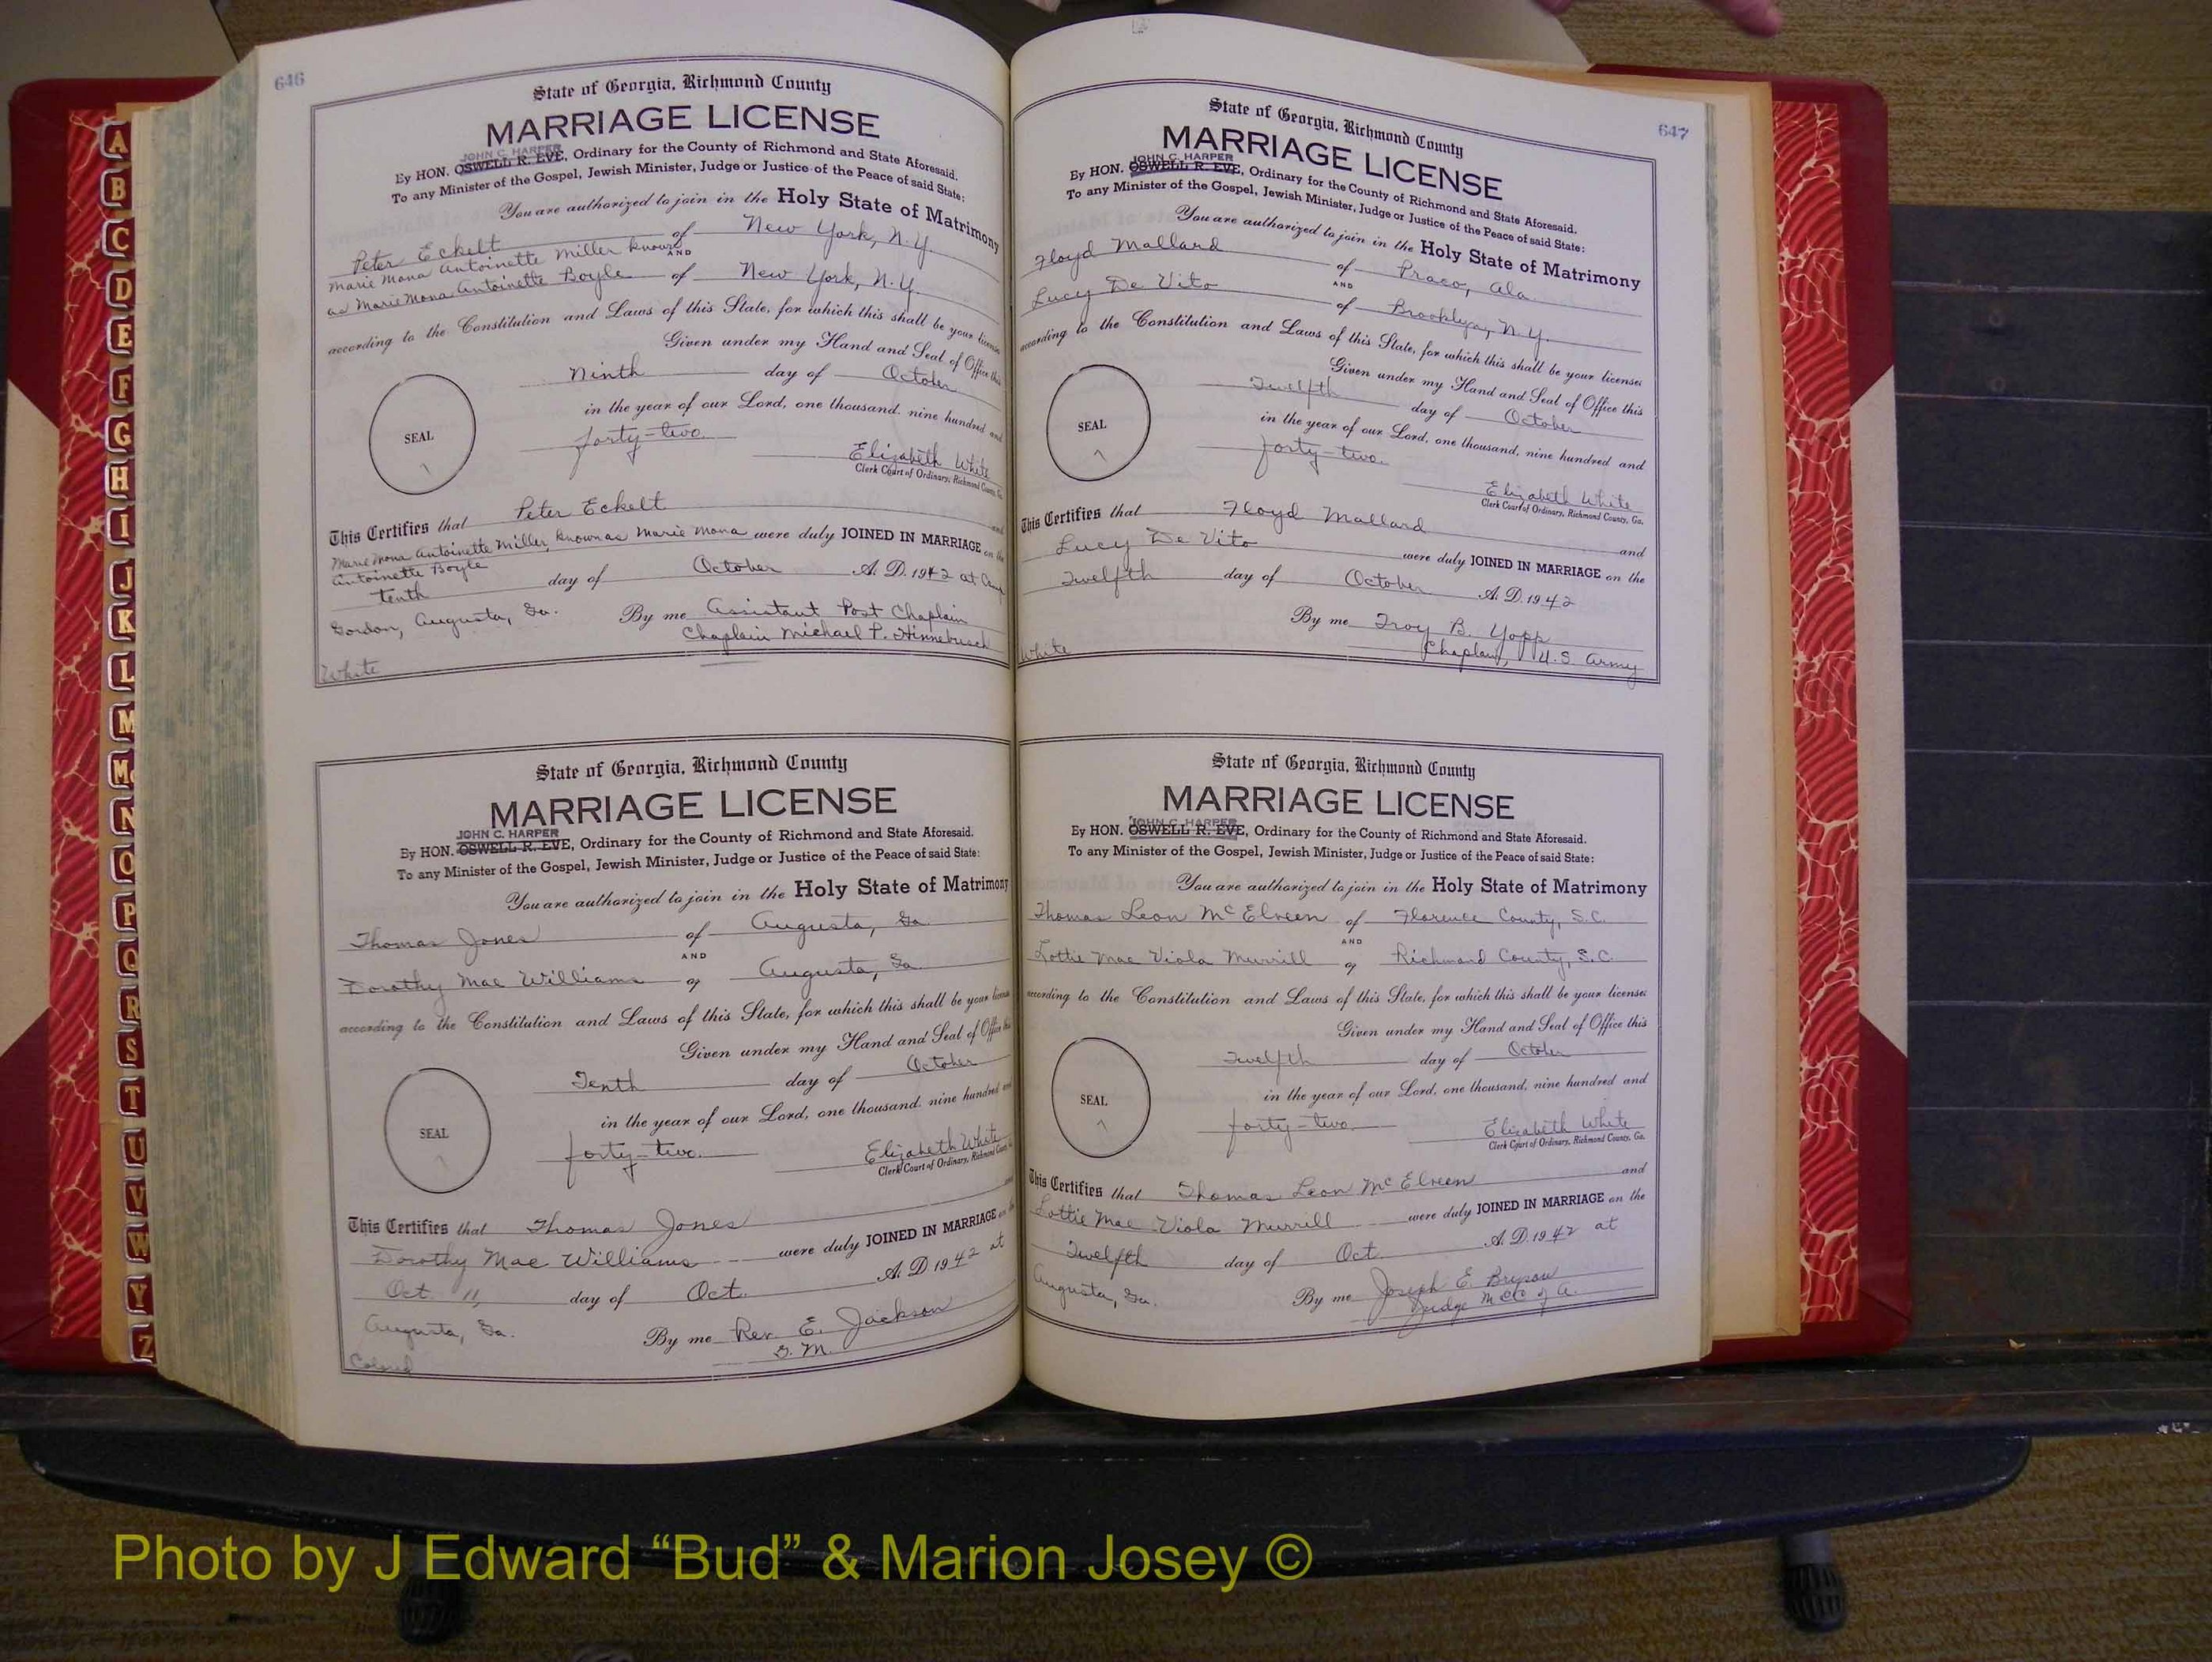 646
State of Georgia, Richmond County
MARRIAGE LICENSE
JOHN C. HARPER
By HON. OSWELL R. EVE, Ordinary for the County of Richmond and State Aforesaid.
To any Minister of the Gospel, Jewish Minister, Judge or Justice of the Peace of said State:
You are authorized to join in the Holy State of Matrimony
Peter Eckelt of New York, N.Y.
Marie Mona Antoinette Miller known AND
as Marie Mona Antoinette Boyle of New York, N.Y.
according to the Constitution and Laws of this State, for which this shall be your license
Given under my Hand and Seal of Office this
Ninth day of October
in the year of our Lord, one thousand, nine hundred and
SEAL
forty-two.
Elizabeth White
Clerk Court of Ordinary, Richmond County, Ga.
This Certifies that Peter Eckelt and
Marie Mona Antoinette Miller, known as Marie Mona were duly JOINED IN MARRIAGE on the
Antoinette Boyle
tenth day of October A. D. 1942 at Camp
Gordon, Augusta, Ga. By me Assistant Post Chaplain
Chaplain Michael P. Hinnebusch
White
State of Georgia, Richmond County
MARRIAGE LICENSE
JOHN C. HARPER
By HON. OSWELL R. EVE, Ordinary for the County of Richmond and State Aforesaid.
To any Minister of the Gospel, Jewish Minister, Judge or Justice of the Peace of said State:
You are authorized to join in the Holy State of Matrimony
Thomas Jones of Augusta, Ga.
AND
Dorothy Mae Williams of Augusta, Ga.
according to the Constitution and Laws of this State, for which this shall be your license
Given under my Hand and Seal of Office this
Tenth day of October
in the year of our Lord, one thousand, nine hundred and
SEAL
forty-two.
Elizabeth White
Clerk Court of Ordinary, Richmond County, Ga.
This Certifies that Thomas Jones and
Dorothy Mae Williams were duly JOINED IN MARRIAGE on the
Oct. 11, day of Oct. A. D. 1942 at
Augusta, Ga. By me Rev. E. Jackson
G. M.
Colored
647
State of Georgia, Richmond County
MARRIAGE LICENSE
JOHN C. HARPER
By HON. OSWELL R. EVE, Ordinary for the County of Richmond and State Aforesaid.
To any Minister of the Gospel, Jewish Minister, Judge or Justice of the Peace of said State:
You are authorized to join in the Holy State of Matrimony
Floyd Mallard of Praco, Ala.
AND
Lucy De Vito of Brooklyn, N.Y.
according to the Constitution and Laws of this State, for which this shall be your license
Given under my Hand and Seal of Office this
Twelfth day of October
in the year of our Lord, one thousand, nine hundred and
SEAL
forty-two.
Elizabeth White
Clerk Court of Ordinary, Richmond County, Ga.
This Certifies that Floyd Mallard and
Lucy De Vito were duly JOINED IN MARRIAGE on the
Twelfth day of October A. D. 1942
By me Troy B. Yopp
Chaplain, U.S. Army
White
State of Georgia, Richmond County
MARRIAGE LICENSE
JOHN C. HARPER
By HON. OSWELL R. EVE, Ordinary for the County of Richmond and State Aforesaid.
To any Minister of the Gospel, Jewish Minister, Judge or Justice of the Peace of said State:
You are authorized to join in the Holy State of Matrimony
Thomas Leon McElveen of Florence County, S.C.
AND
Lottie Mae Viola Murrill of Richmond County, S.C.
according to the Constitution and Laws of this State, for which this shall be your license
Given under my Hand and Seal of Office this
Twelfth day of October
in the year of our Lord, one thousand, nine hundred and
SEAL
forty-two
Elizabeth White
Clerk Court of Ordinary, Richmond County, Ga.
This Certifies that Thomas Leon McElveen and
Lottie Mae Viola Murrill were duly JOINED IN MARRIAGE on the
Twelfth day of Oct. A. D. 1942 at
Augusta, Ga. By me Joseph E. Bryson
Judge MCC of A.
A
B
C
D
E
F
G
H
I
J
K
L
M
Mc
N
O
P
Q
R
S
T
U
V
W
Y
Z
Photo by J Edward “Bud” & Marion Josey ©